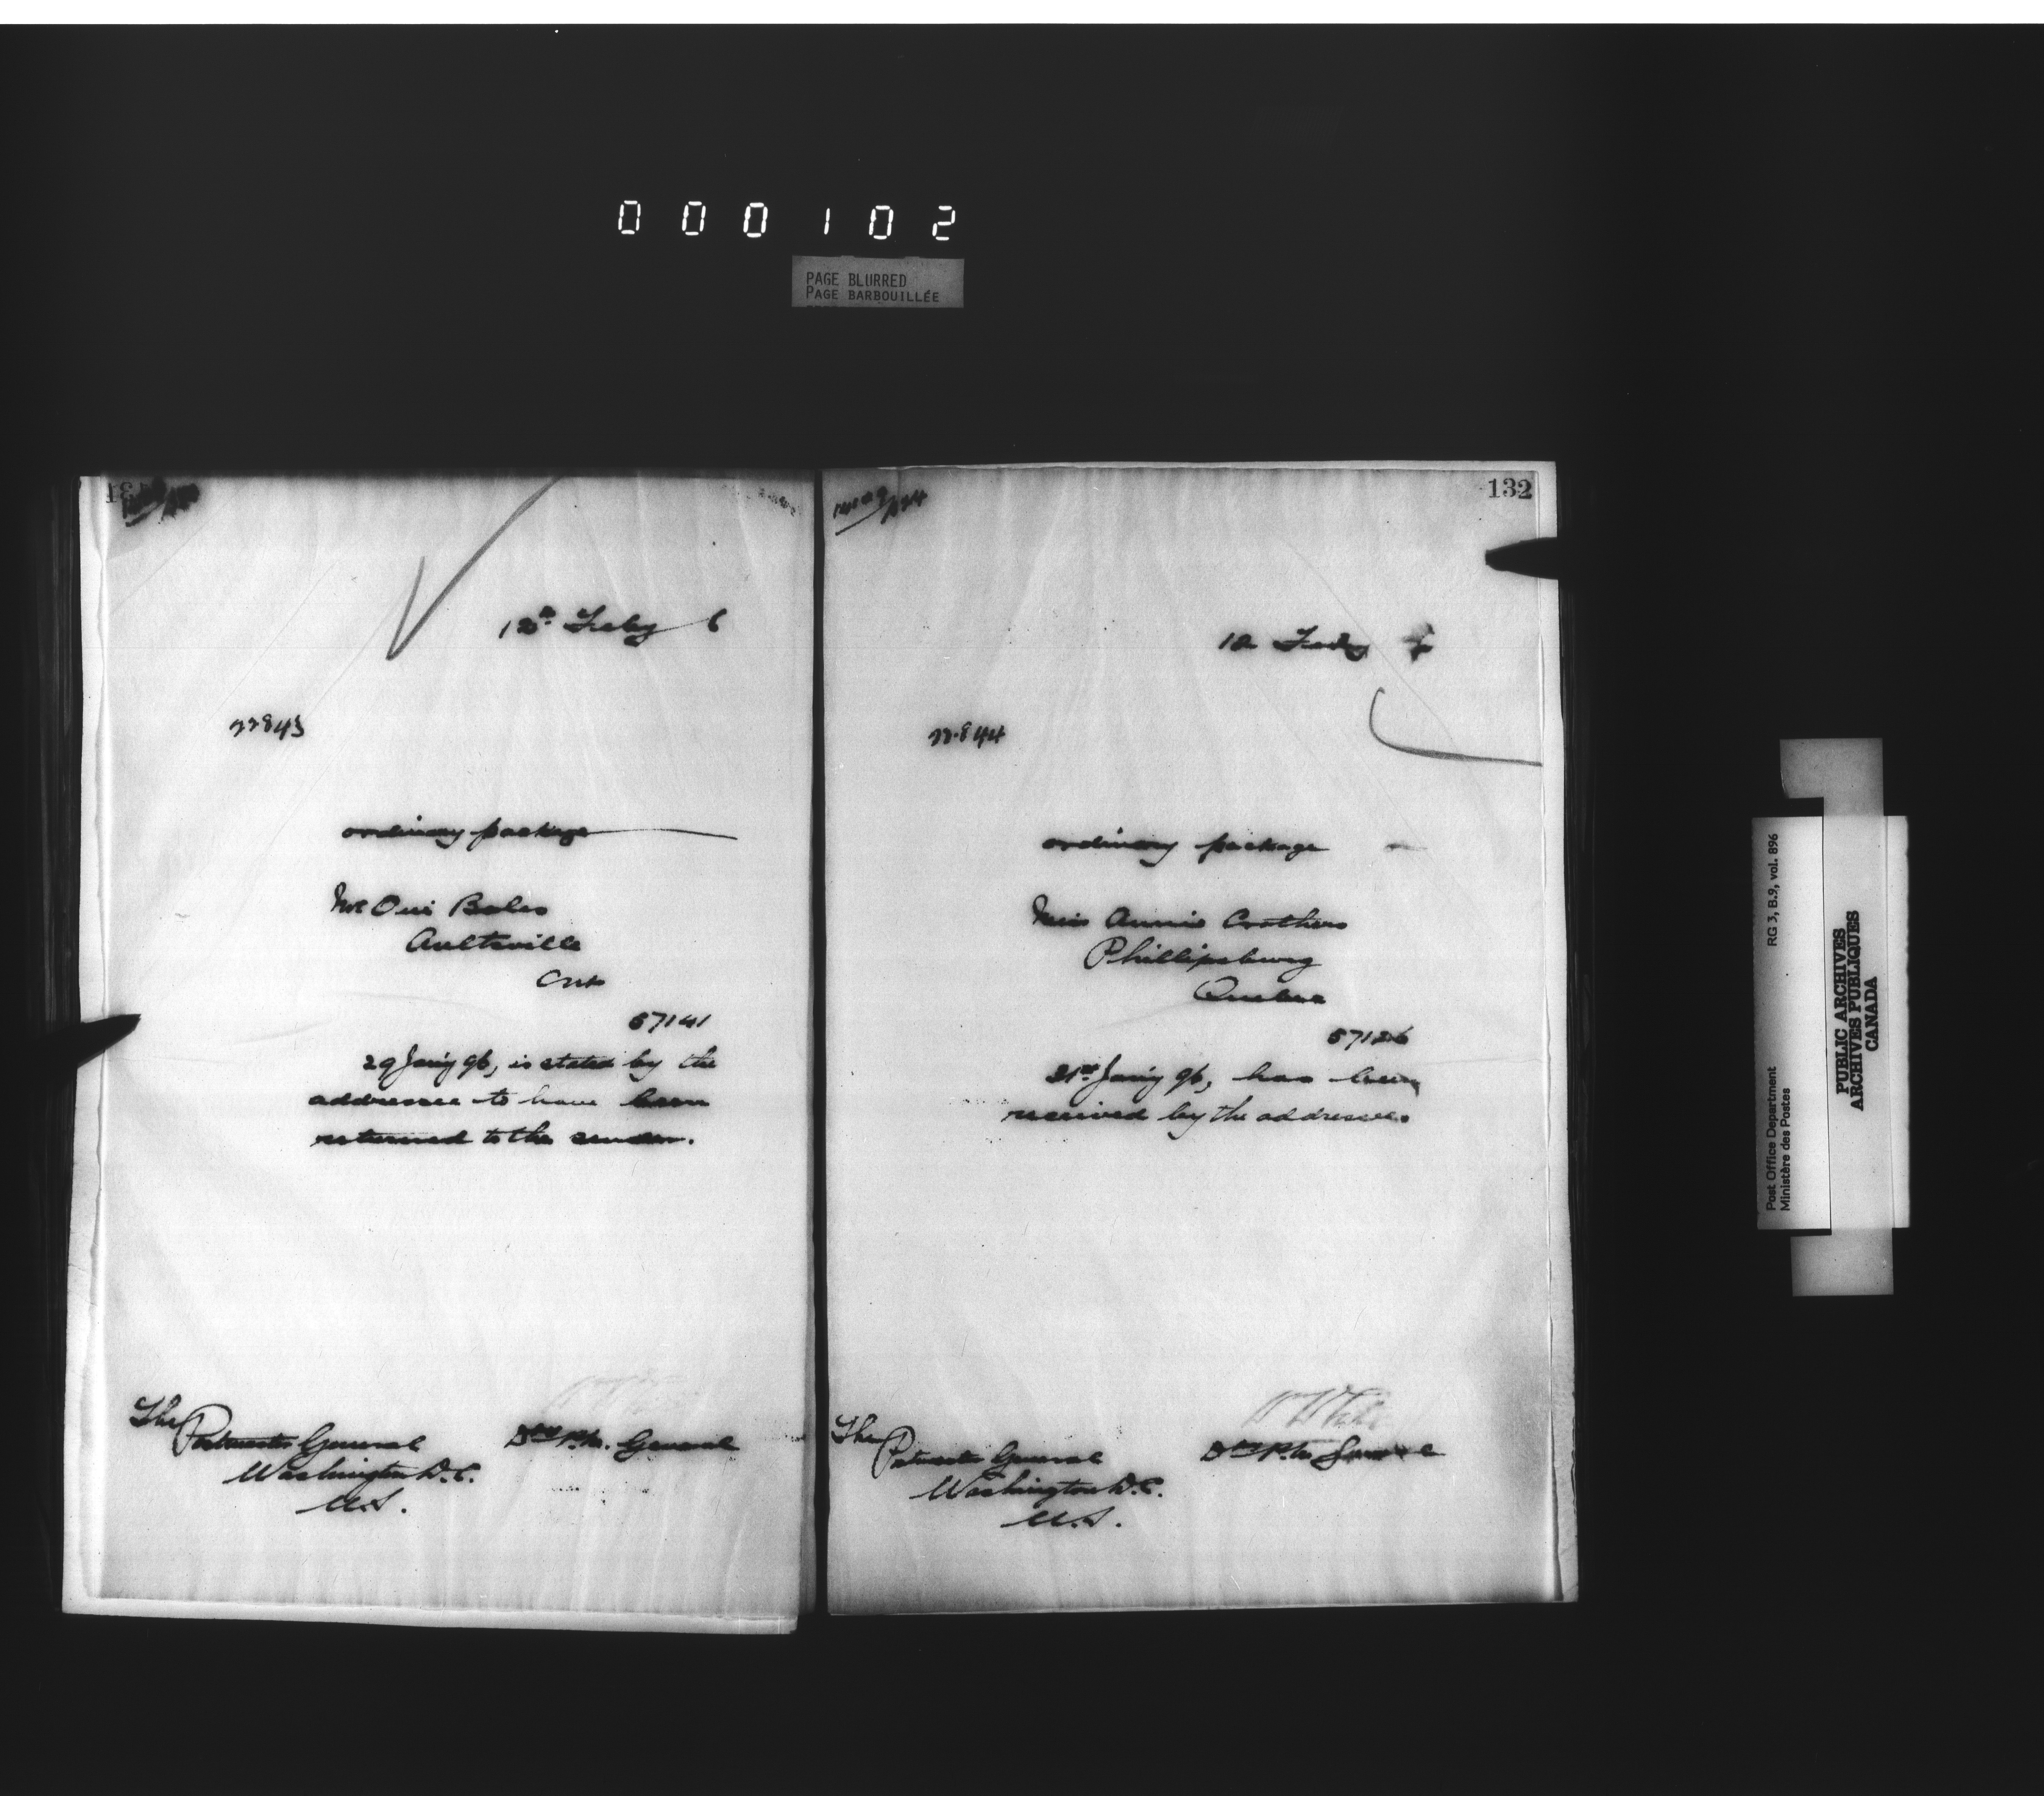 000102
PAGE BLURRED
PAGE BARBOUILLÉE
12th Feby 6
22843
ordinary package
Bales
Aultsville
Ont
57141
29 Jan'y 96, is stated by the
addressee to have been
returned to the sender.
The
Postmaster General
Washington D.C.
U.S.
Dy P.M. General
132
12 Feby
22844
ordinary package
Miss Annie Crothers
Phillipsburg
Quebec
57126
31st Jan'y 96, has been
received by the addressee.
The
Postmaster General
Washington D.C.
U.S.
Dy P.M. General
Post Office Department
Ministère des Postes
RG 3, B.9, vol. 896
PUBLIC ARCHIVES
ARCHIVES PUBLIQUES
CANADA